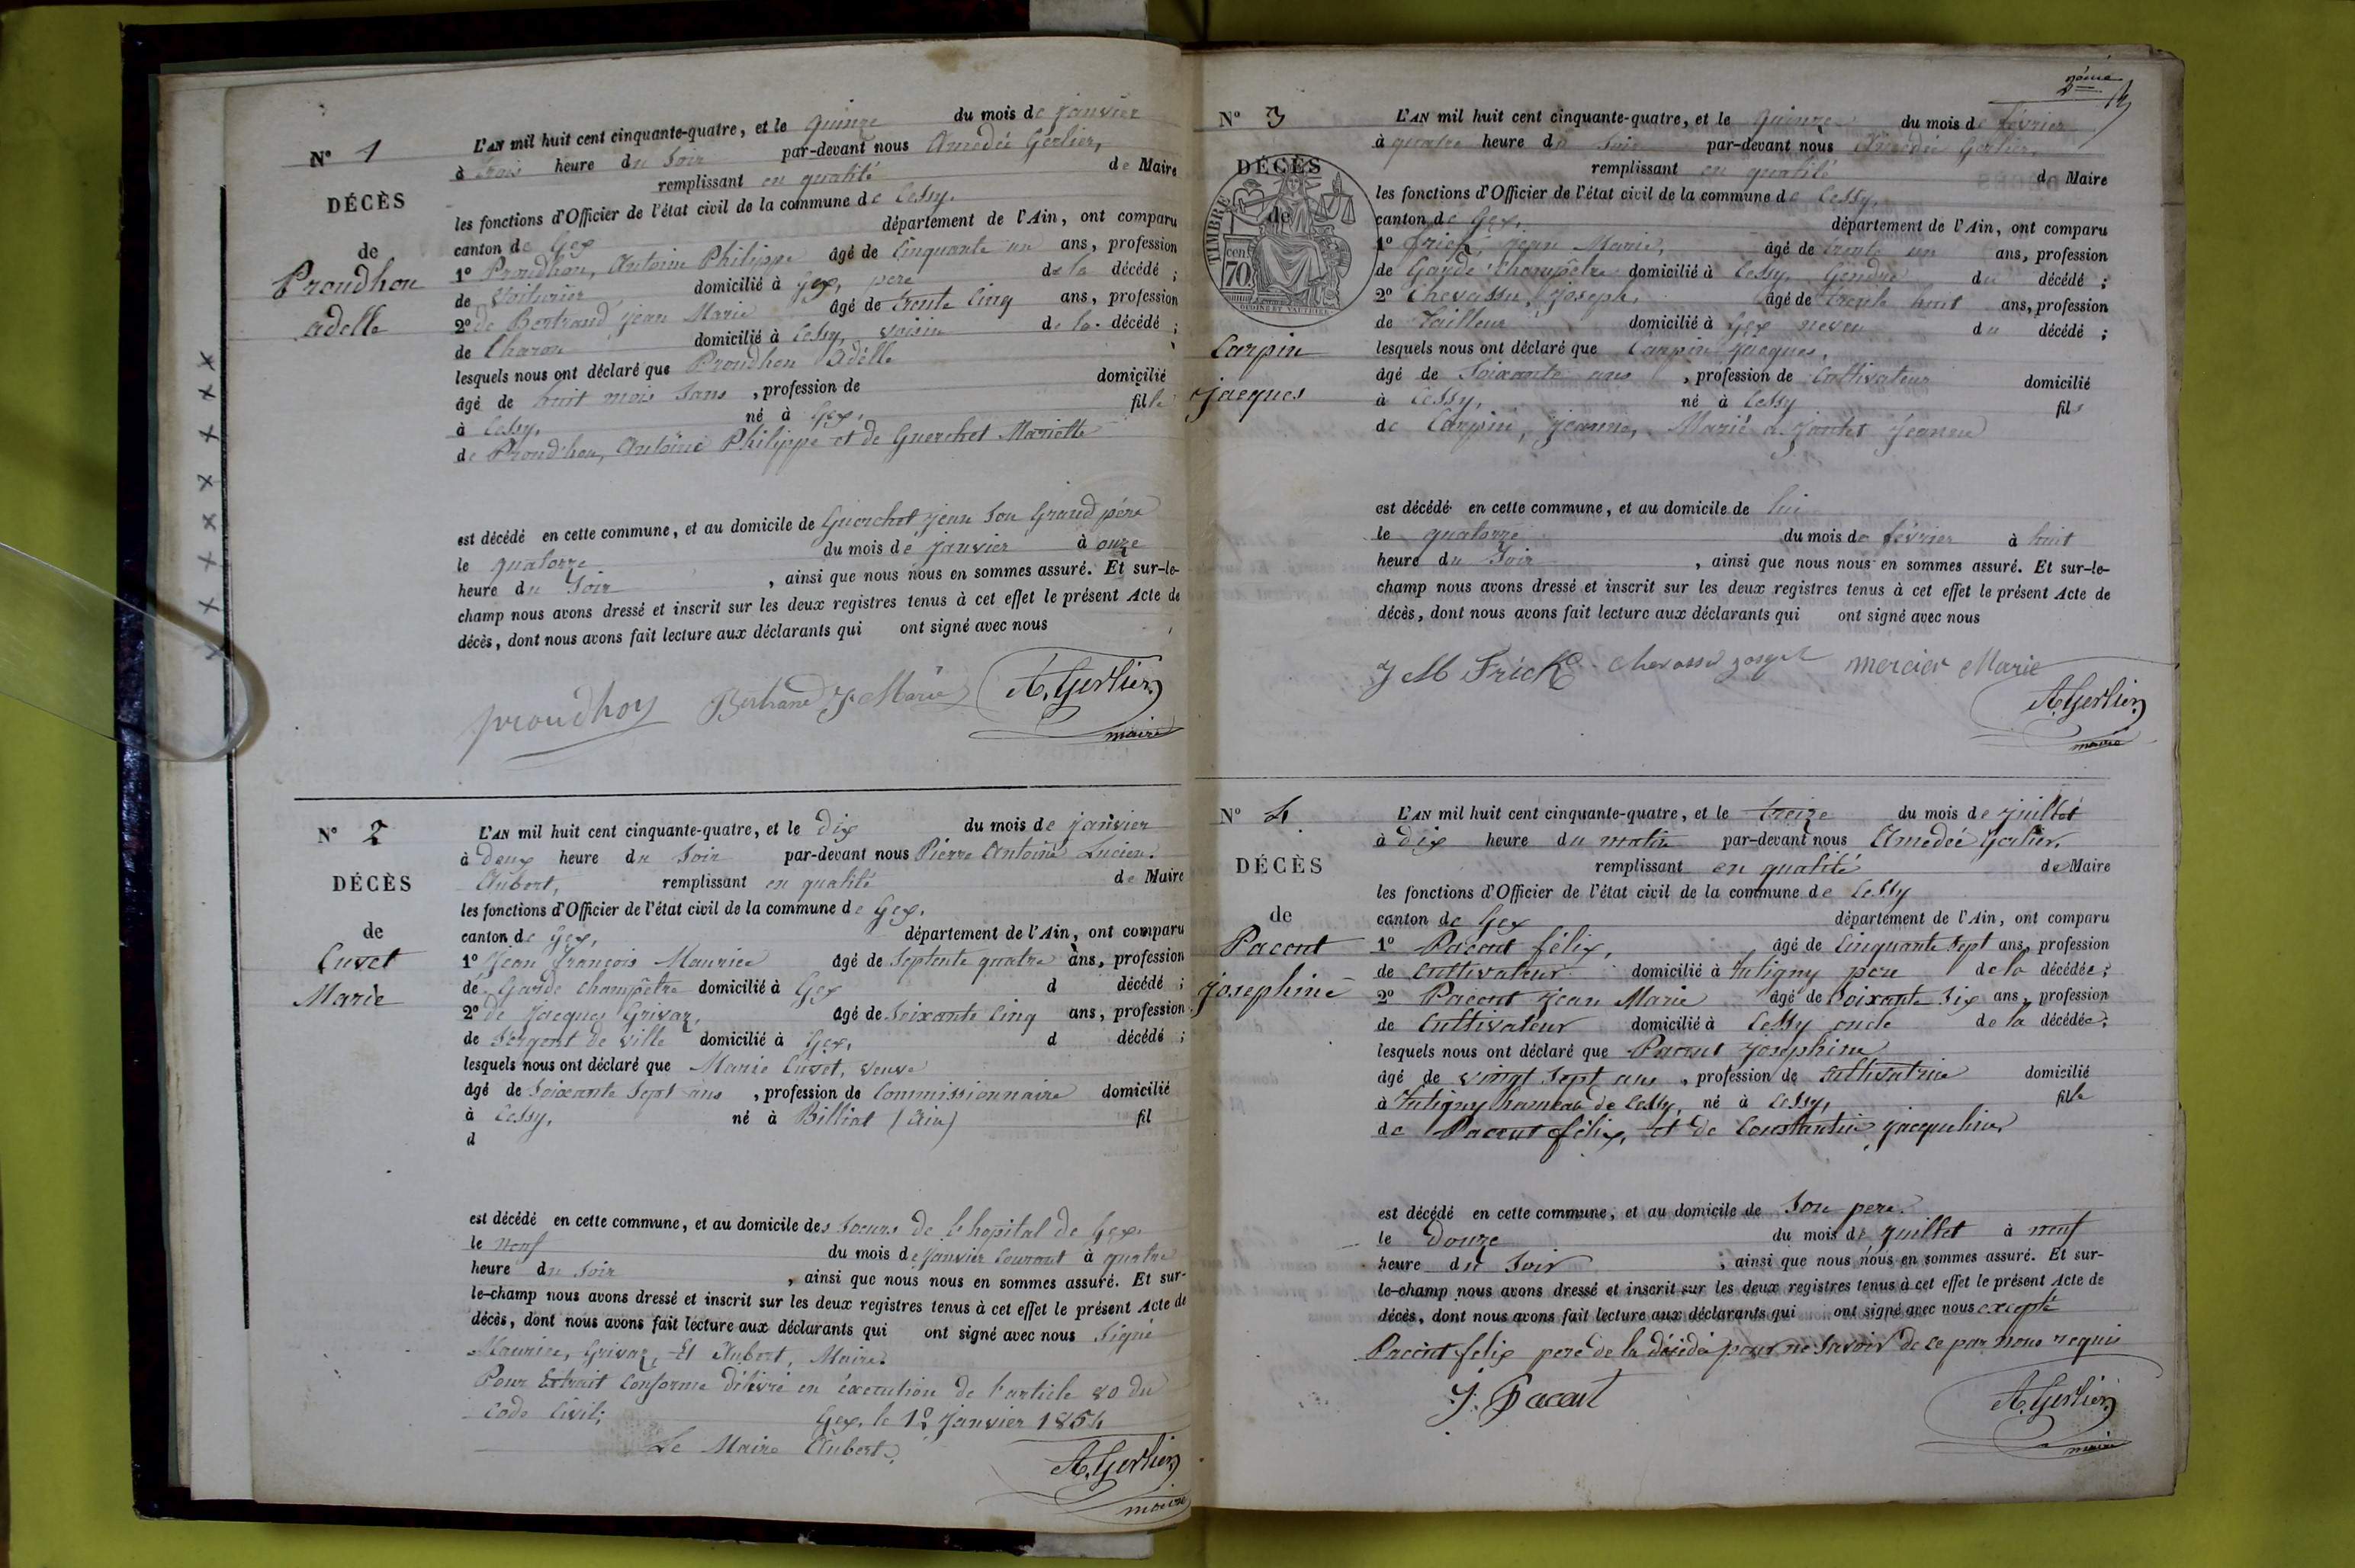 N° 1
DÉCÈS
de
Proudhon
adelle
L'AN mil huit cent cinquante-quatre, et le quinze du mois de janvier
à trois heure du Soir par-devant nous Amedée Gerlier,
remplissant en qualité de Maire
les fonctions d'Officier de l'état civil de la commune de Cessy.
canton de Gex département de l'Ain, ont comparu
1° Proudhon, Antoine Philippe âgé de Cinquante un ans, profession
de Voiturier domicilié à Gex, pere de la décédé ;
2° de Bertrand jean Marie âgé de trente Cinq ans, profession
de Charon domicilié à Cessy, voisin de la décédé ;
lesquels nous ont déclaré que Proudhon Adélle
âgé de huit mois Sans , profession de domicilié
à Cessy, né à Gex, fille
de Proud'hon, Antoine Philippe et de Guerchet Mariette
est décédé en cette commune, et au domicile de Guerchet jean Son Grand pére
le quatorze du mois de janvier à onze
heure du Soir , ainsi que nous nous en sommes assuré. Et sur-le-
champ nous avons dressé et inscrit sur les deux registres tenus à cet effet le présent Acte de
décès, dont nous avons fait lecture aux déclarants qui ont signé avec nous
proudhon Bertrand J. Marie A. Gerlier
maire
N° 2
DÉCÈS
de
Cuvet
Marie
L'AN mil huit cent cinquante-quatre, et le dix du mois de janvier
à deux heure du Soir par-devant nous Pierre Antoine Lucien
Aubert, remplissant en qualité de Maire
les fonctions d'Officier de l'état civil de la commune de Gex.
canton de Gex, département de l'Ain, ont comparu
1° Jean François Maurice âgé de Septente quatre ans, profession
de Garde Champêtre domicilié à Gex d décédé ;
2° de Jacques Grivaz, âgé de Soixante Cinq ans, profession
de Sergent de ville domicilié à Gex, d décédé ;
lesquels nous ont déclaré que Marie Cuvet, veuve
âgé de Soixante Sept ans , profession de Commissionnaire domicilié
à Cessy, né à Billiat (Ain) fil
d
est décédé en cette commune, et au domicile des Soeurs de l'hopital de Gex.
le neuf du mois de janvier Courant à quatre
heure du Soir , ainsi que nous nous en sommes assuré. Et sur-
le-champ nous avons dressé et inscrit sur les deux registres tenus à cet effet le présent Acte de
décès, dont nous avons fait lecture aux déclarants qui ont signé avec nous Signé
Maurice, Grivaz, Et Aubert, Maire.
Pour Extrait Conforme délivré en éxecution de l'article 80 du
Code Civil; Gex, le janvier 1854
Le Maire Aubert
A. Gerlier
maire
2me
N° 3
DÉCÈS
de
TIMBRE
cen
70
Carpin
jacques
L'AN mil huit cent cinquante-quatre, et le quinze du mois de février
à quatre heure du Soir par-devant nous Amedée Gerlier,
remplissant en qualité de Maire
les fonctions d'Officier de l'état civil de la commune de Cessy,
canton de Gex, département de l'Ain, ont comparu
1° Frick, jean Marie, âgé de trente un ans, profession
de Garde Champêtre domicilié à Cessy, Gendre du décédé ;
2° Chevassu, joseph, âgé de trente huit ans, profession
de Tailleur domicilié à Gex neveu du décédé ;
lesquels nous ont déclaré que Carpin jacques,
âgé de Soixante ans , profession de Cultivateur domicilié
à Cessy, né à Cessy fils
de Carpin, jeanne, Marié a
est décédé en cette commune, et au domicile de lui
le quatorze du mois de février à huit
heure du Soir , ainsi que nous nous en sommes assuré. Et sur-le-
champ nous avons dressé et inscrit sur les deux registres tenus à cet effet le présent Acte de
décès, dont nous avons fait lecture aux déclarants qui ont signé avec nous
J M Frick Chevassu joseph mercier Marie
A. Gerlier
maire
N° 4
DÉCÈS
de
Pacout
josephine
L'AN mil huit cent cinquante-quatre, et le treize du mois de juillet
à dix heure du matin par-devant nous Amedée Gerlier.
remplissant en qualité de Maire
les fonctions d'Officier de l'état civil de la commune de Cessy
canton de Gex département de l'Ain, ont comparu
1° Pacout félix, âgé de Cinquante Sept ans, profession
de Cultivateur domicilié à Tutigny pere de la décédée ;
2° Pacout jean Marie âgé de Soixante Six ans, profession
de Cultivateur domicilié à Cessy oncle de la décédée ;
lesquels nous ont déclaré que Pacout josephine
âgé de vingt Sept ans , profession de Cultivatrice domicilié
à Tutigny hameau de Cessy, né à Cessy, fille
de Pacout félix, et de Constantin jacqueline
est décédé en cette commune, et au domicile de Son pere.
le Douze du mois de juillet à neuf
heure du Soir ; ainsi que nous nous en sommes assuré. Et sur-
le-champ nous avons dressé et inscrit sur les deux registres tenus à cet effet le présent Acte de
décès, dont nous avons fait lecture aux déclarants qui ont signé avec nous excepté
Pacout félix pere de la décédé pour ne Savoir de ce par nous requis
J. Pacout A. Gerlier
maire